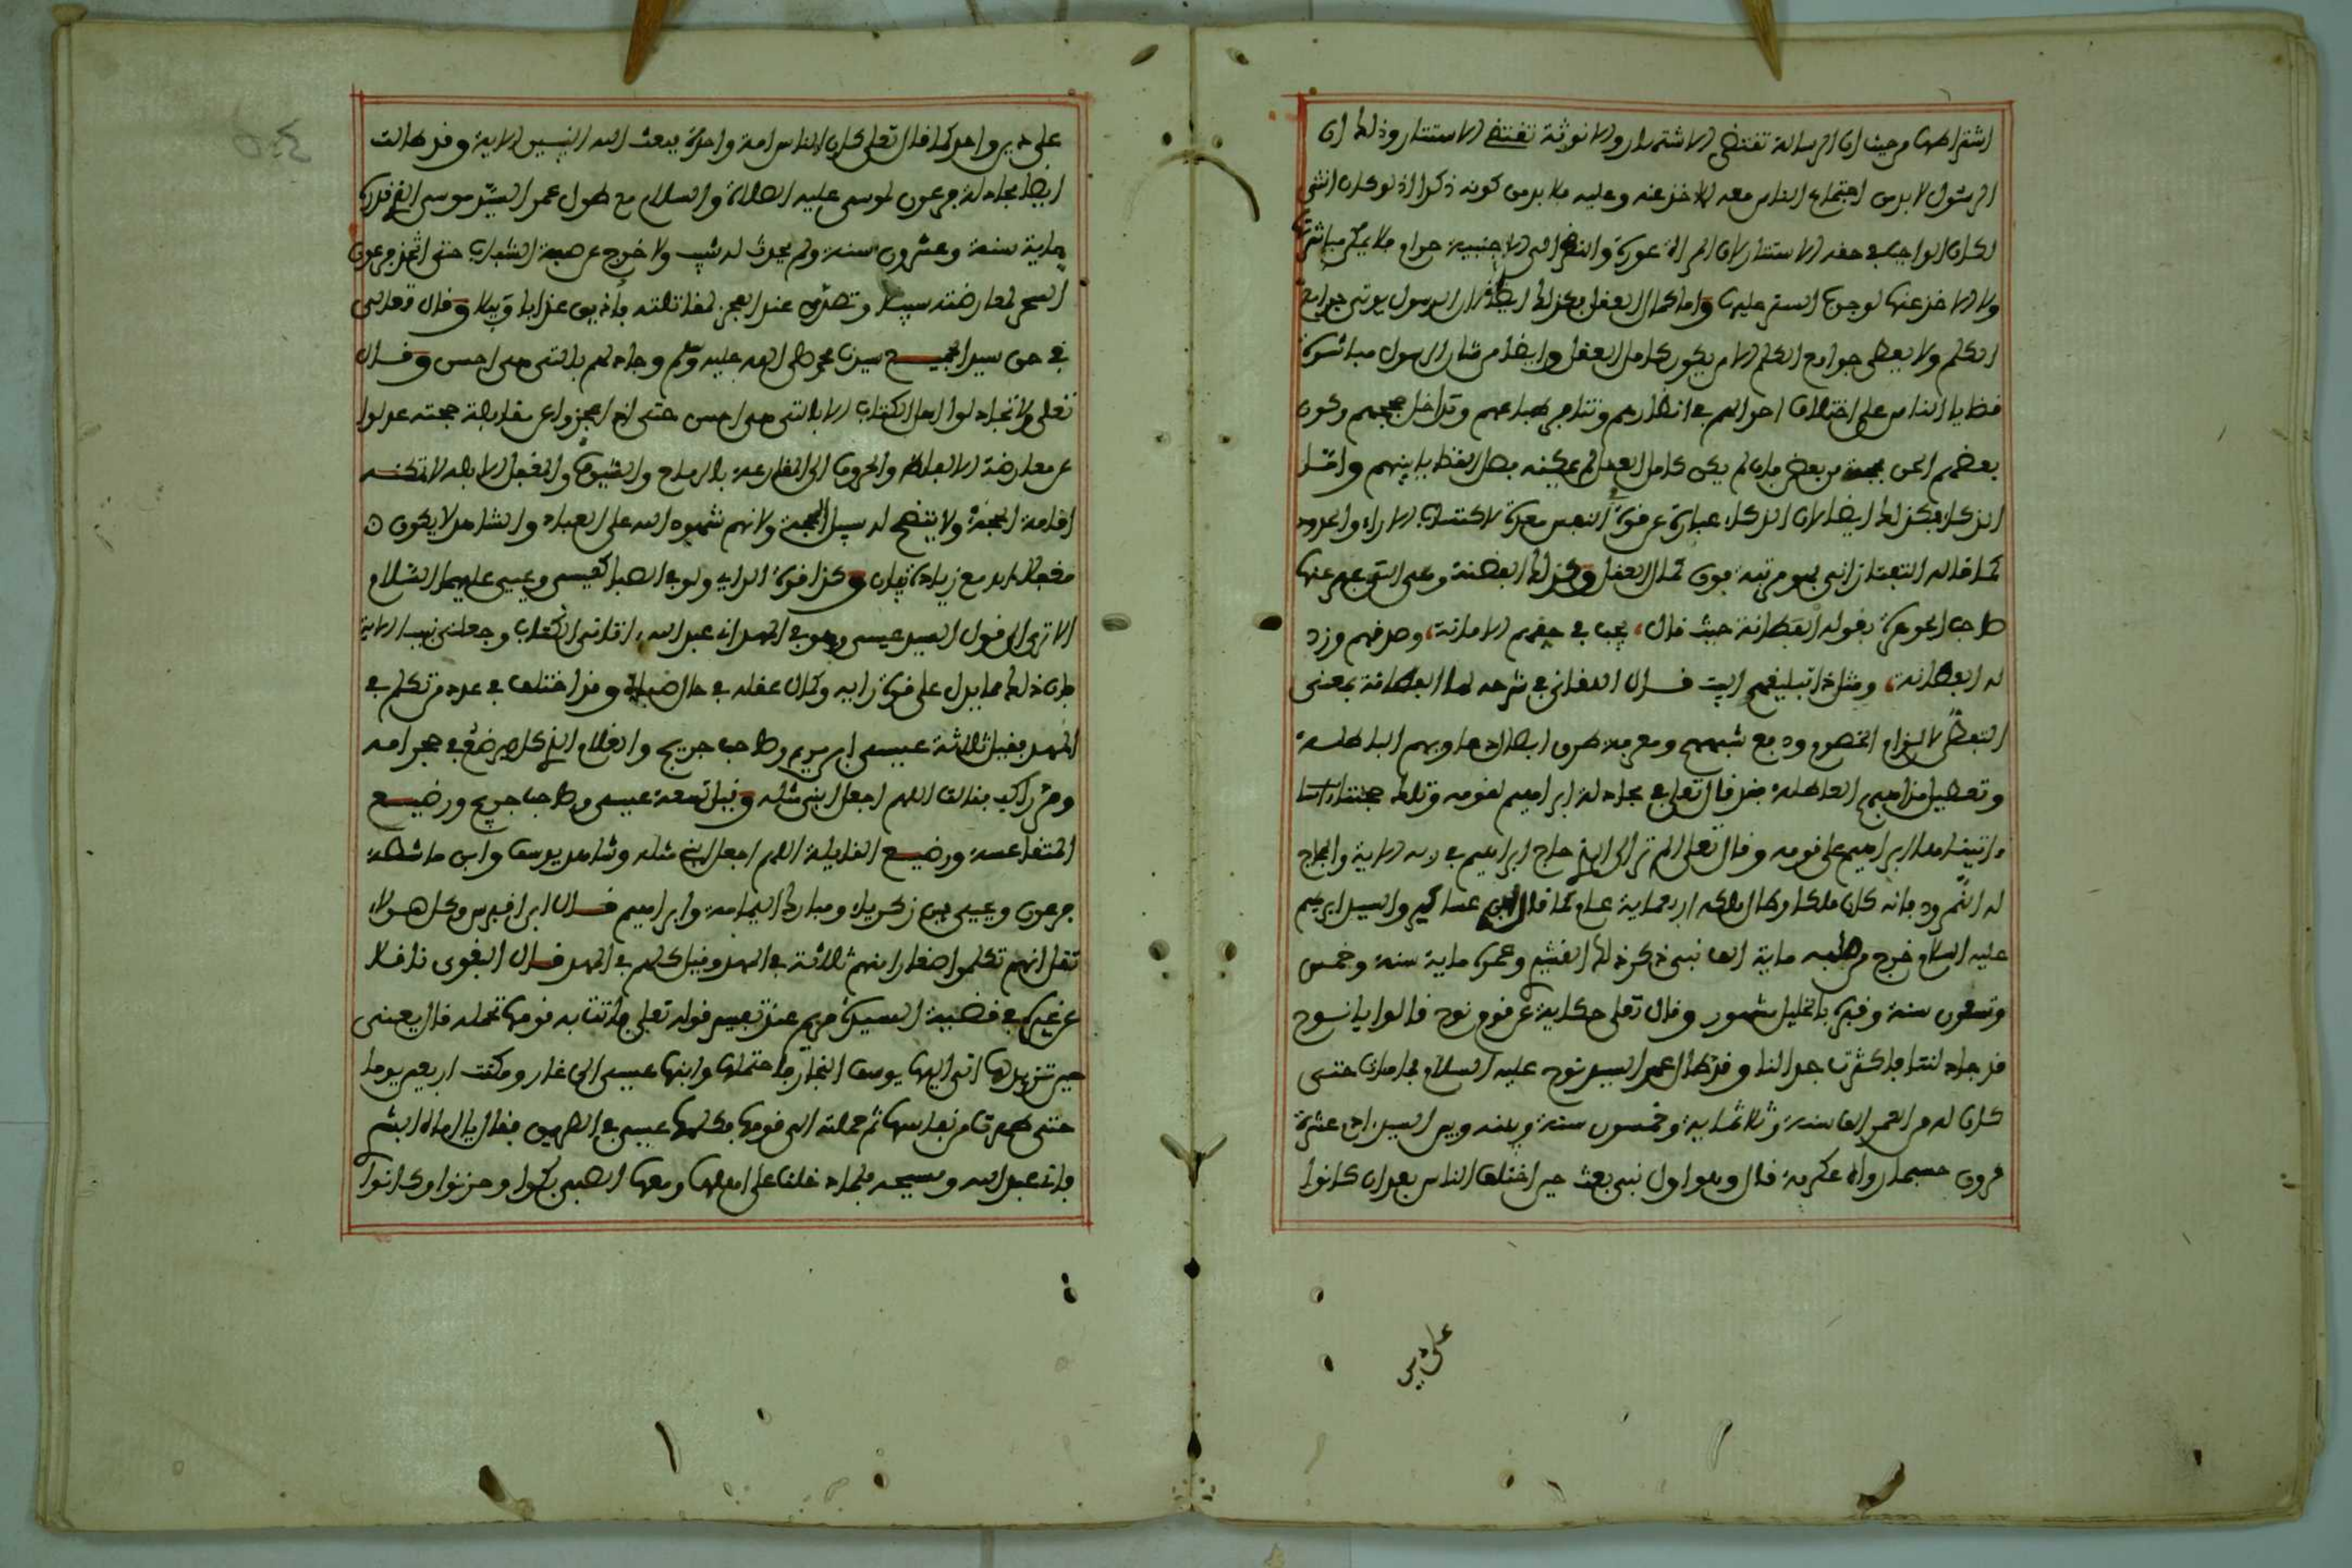 اشتراطها من حيث ان الرسالة تقتضي الاشتهار والانوثة تقتضي الاستتار وذلك ان
الرسول لا بد من اجتماع الناس معه للاخذ عنه وعليه فلا بد من كونه ذكرا اذ لو كان انثى
لكان الواجب في حقه الاستتار لان المراة عورة والنظر الى الاجنبية حرام فلا يمكن مباشرتها
ولا الاخذ عنها لوجوب الستر عليها واما كمال العقل فكذلك ايضا لان الرسول يوتى جوامع
الكلم ولا يعطى جوامع الكلم الا من يكون كامل العقل وايضا من شان الرسول مباشرة
قضايا الناس على اختلاف احوالهم في انظارهم وتنافر طباعهم وتداخل حججهم وكون
بعضهم الحن بحجته من بعض فان لم يكن كامل العقل لم يمكنه فصل القضايا بينهم واما
الذكاء فكذلك ايضا لان الذكاء عبارة عن قوة النفس معدة لاكتساب الاراء والحدود
كما قاله التفتازاني فهو مرتبة فوق كمال العقل وكذلك الفطنة وهي التي عبر عنها
صاحب الجوهرة بقوله الفطانة حيث قال، يجب في حقهم الامانة، وصدقهم وزد
له الفطانة، ومثل ذا تبليغهم البيت قال اللقاني في شرحه لها الفطانة بمعنى
التيقظ لالزام الخصوم ودفع شبههم ومعرفة طرق ابطال دعاويهم الباطلة
وتعطيل مذاهبهم العاطلة فقد قال تعلى في مجادلة ابراهيم لقومه وتلك حجتنا
ءاتيناها ابراهيم على قومه وقال تعلى الم تر الى الذي حاج ابراهيم في ربه الاية والمحاج
له النمرود فانه كان ملكا وطال ملكه اربعماية عام كما قال ابن عساكير والسيد ابراهيم
عليه السلام خرج من صلبه ماية الف نبي ذكر ذلك القشيري وعمره ماية سنة وخمس
وتسعون سنة وقبره بالخليل مشهور وقال تعلى حكاية عن قوم نوح قالوا يا نوح
قد جادلتنا فاكثرت جدالنا وقد طال عمر السيد نوح عليه السلام فما مات حتى
كان له من العمر الف سنة وثلاثماية وخمسون سنة وبينه وبين السيد ادم عشرة
قرون حسبما رواه عكرمة قال وهو اول نبي بعث حين اختلف الناس بعد ان كانوا
على دين
على دين واحد كما قال تعلى كان الناس امة واحدة فبعث الله النبيين الاية وقد طالت
ايضا مجادلة فرعون لموسى عليه الصلاة والسلام مع طول عمر السيد موسى الذي قدره
ماية سنة وعشرون سنة ولم يحدث له شيب ولا خرج عن صبغة الشباب حتى اتخذ فرعون
السحر لمعارضته سبيلا وتصدى عند العجز لمقاتلته فاذيق عذابا وبيلا وقال تعالى
في حق سيد الجميع سيدنا محمد صلى الله عليه وسلم وجادلهم بالتي هي احسن وقال
تعلى ولا تجادلوا اهل الكتاب الا بالتي هي احسن حتى اذا عجزوا عن مقابلة حجته عدلوا
عن معارضة الالفاظ والحروف الى المقارعة بالرماح والسيوف والمغفل الابله لا تمكنه
اقامة الحجة ولا يتضح له سبيل المحجة ولانهم شهود الله على العباد والشاهد لا يكون
مغفلا ابدا مع زيادة بيان وكذا قوة الراي ولو في الصبا كعيسى ويحيى عليهما السلام
الا ترى الى قول السيد عيسى وهو في المهد اني عبد الله اتاني الكتاب وجعلني نبيا الاية
فان ذلك مما يدل على قوة رايه وكمال عقله في حال صباه وقد اختلف في عدد من تكلم في
المهد فقيل ثلاثة عيسى ابن مريم وصاحب جريج والغلام الذي كان يرضع في حجر امه
ومر راكب فقالت اللهم اجعل ابني مثله وقيل تسعة عيسى وصاحب جريج ورضيع
المتقاعسة ورضيع القايلة اللهم اجعل ابني مثله وشاهد يوسف وابن ماشطة
فرعون ويحيى بن زكرياء ومبارك اليمامة وابراهيم قال ابن اقبرس وكل هولاء
نقل انهم تكلموا صغارا منهم ثلاثة في المهد وقيل كلهم في المهد قال البغوي ناقلا
عن غيره في قضية السيدة مريم عند تفسير قوله تعلى فاتت به قومها تحمله قال يعني
حين تنزيلها اتى اليها يوسف النجار فاحتملها وابنها عيسى الى غار ومكثت اربعين يوما
حتى طهرت من نفاسها ثم حملته الى قومها فكلمها عيسى في الطريق فقال يا اماه ابشري
فاني عبد الله ومسيحه فلما دخلت على اهلها ومعها الصبي بكوا وحزنوا وكانوا